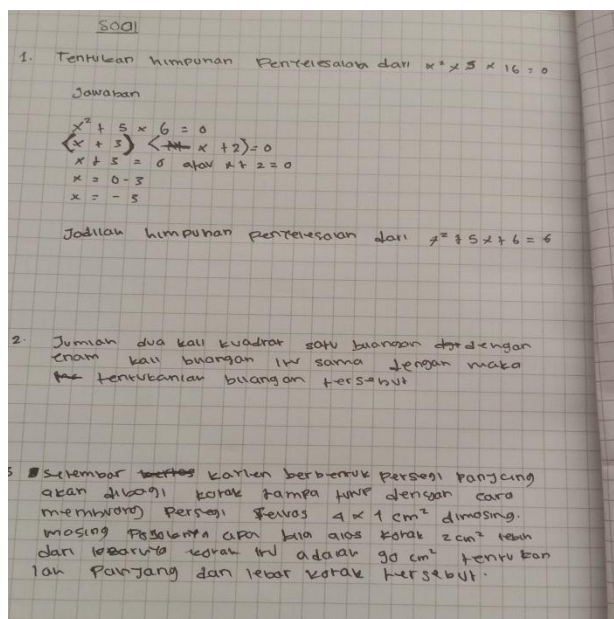 SOAl
1. Tentukan himpunan Penyelesaian dari x² x 5 x 16 = 0
Jawaban
x² + 5 x 6 = 0
(x + 3) (x + 2) = 0
x + 3 = 0 atau x + 2 = 0
x = 0 - 3
x = - 3
Jadilah himpunan penyelesaian dari x² + 5x + 6 = 6
2. Jumlah dua kali kuadrat satu buangan dengan
enam kali buangan itu sama dengan maka
tentukanlah buangan tersebut
Selembar karten berbentuk persegi panjang
akan dibagi kotak tampa tutup dengan cara
memotong persegi seluas 4 x 1 cm² dimasing.
masing Pojoknya apa bila alas kotak 2 cm² lebih
dari lebarnya kotak itu adalah 90 cm² tentukan
lah Panjang dan lebar kotak tersebut.